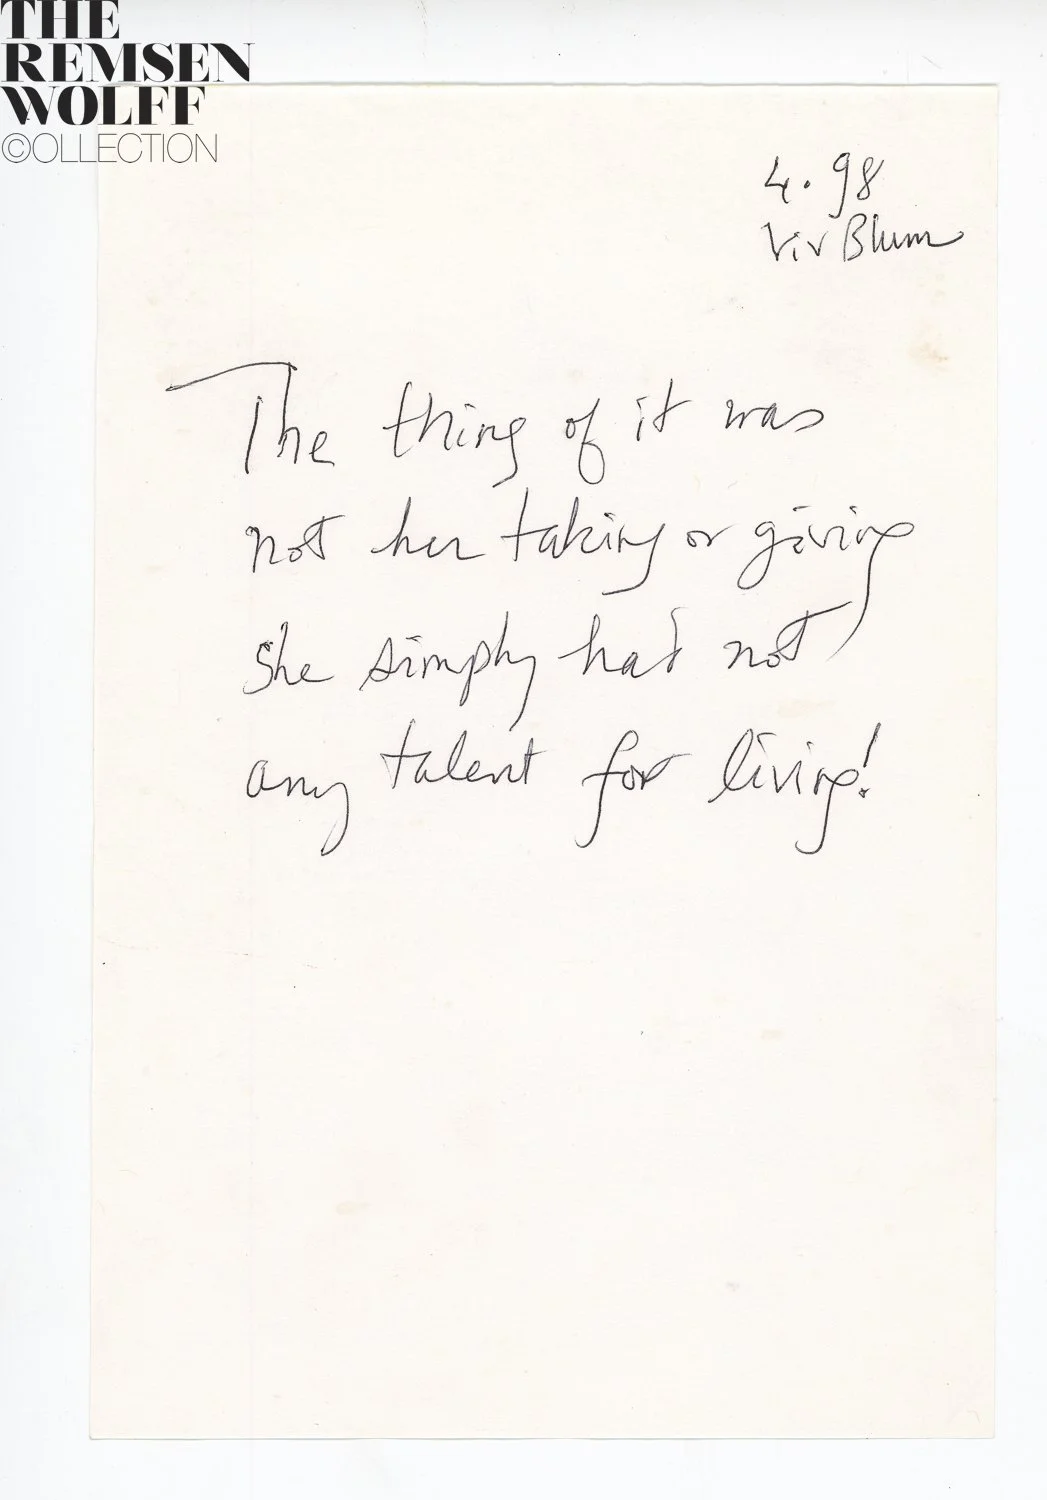 THE
REMSEN
WOLFF
©OLLECTION
4.98
Viv Blum
The thing of it was
not her taking or giving
She simply had not
any talent for living!